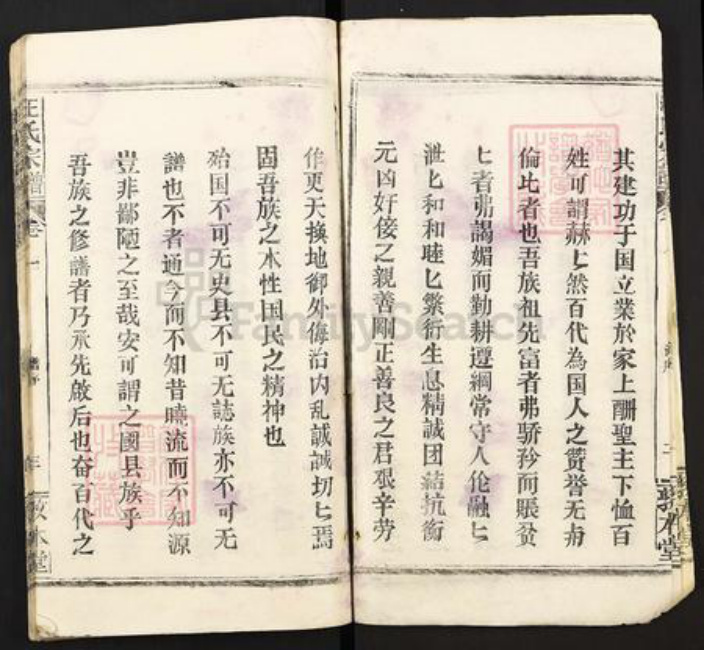 其建功于国立業於家上酬聖主下恤百
姓可謂赫匕然百代為国人之赞誉无有
倫比者也吾族祖先富者弗骄矜而賬貧
匕者弗謁媚而勤耕遵綱常守人伦融匕
泄匕和和睦匕繁衍生息精誠团結抗衡
元凶奸佞之親善刚正善良之君艰辛劳
作更天换地御外侮治内乱誠誠切匕焉
固吾族之本性国民之精神也
殆国不可无史县不可无誌族亦不可无
譜也不者通今而不知昔曉流而不知源
豈非鄙陋之至哉安可謂之國县族乎
吾族之修譜者乃承先啟后也奋百代之
汪氏宗譜
卷一
譜序
敦本堂
FamilySearch